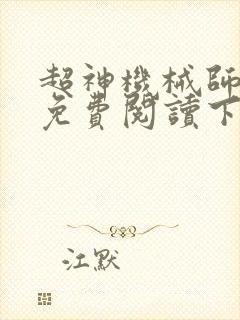 超神機械師
免費閱讀下
江默